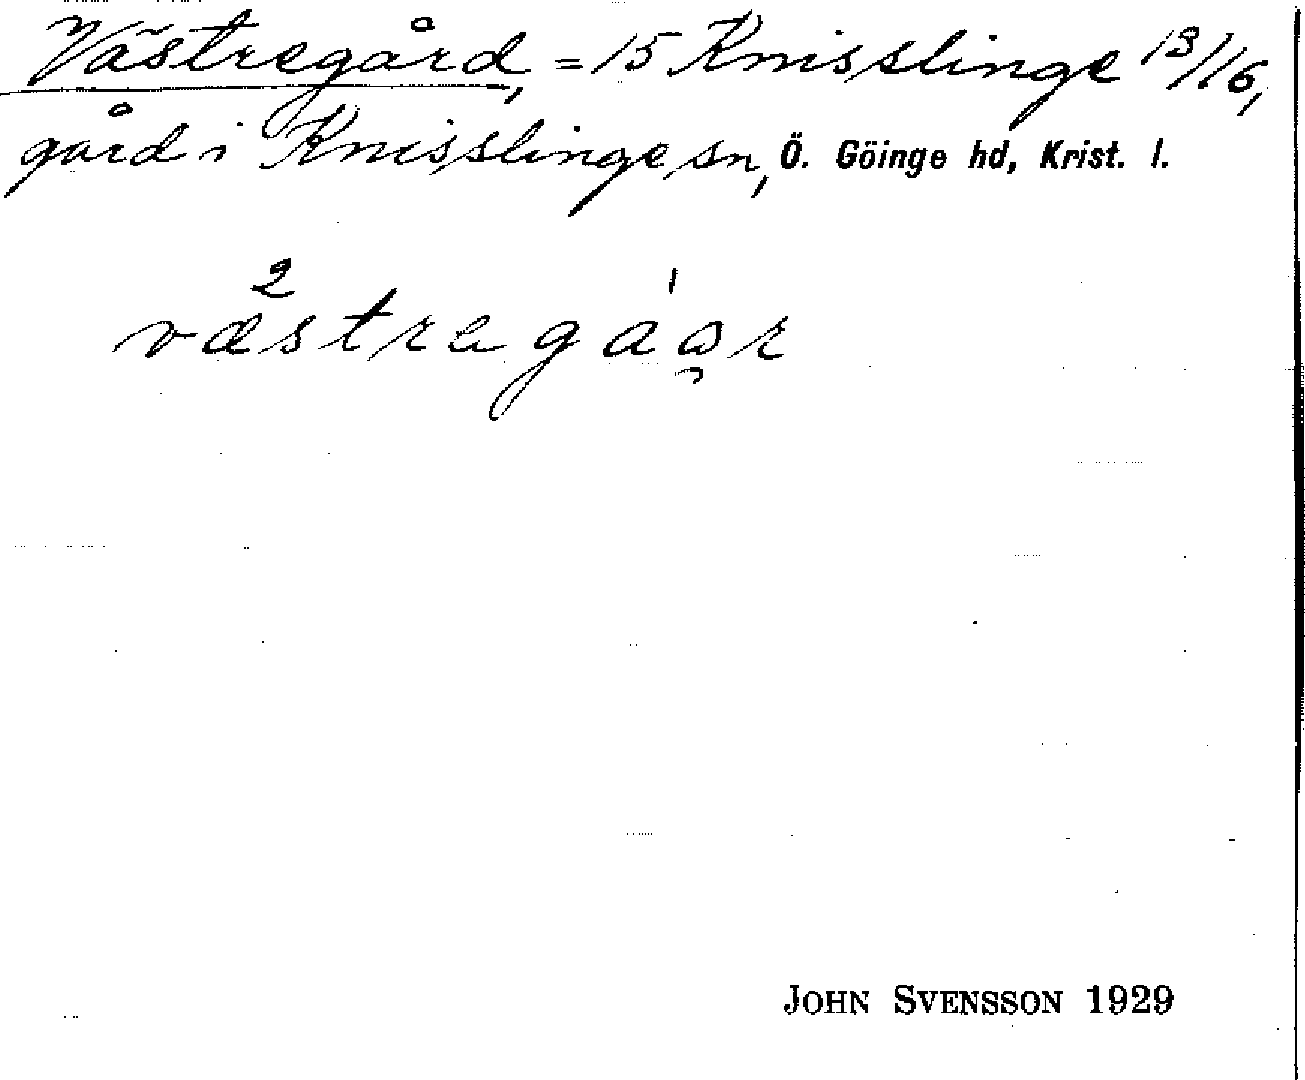 Västregård, = 15 Knisslinge 13/16,
gård i Knisslinge sn, Ö. Göinge hd, Krist. l.
2 1
væstregaar
JOHN SVENSSON 1929